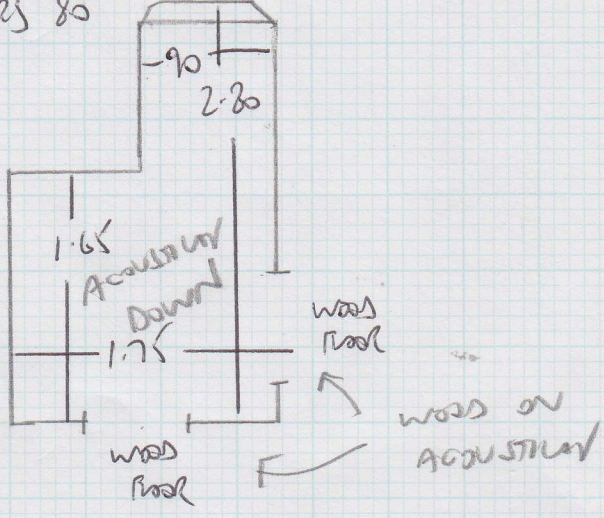 80
-90
2.80
1.65
ACOUSTILAY
DOWN
1.75
WOOD
FLOOR
WOOD ON
ACOUSTILAY
WOOD
FLOOR